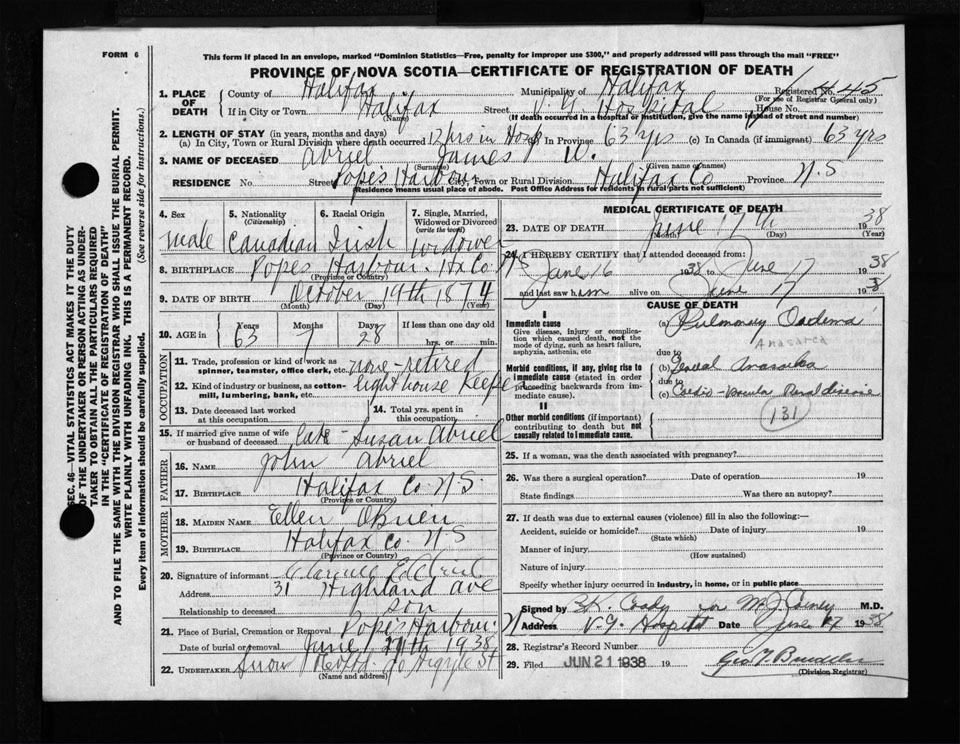 FORM 6
This form if placed in an envelope, marked "Dominion Statistics—Free, penalty for improper use $300," and properly addressed will pass through the mail "FREE"
PROVINCE OF NOVA SCOTIA—CERTIFICATE OF REGISTRATION OF DEATH
1. PLACE OF DEATH County of Halifax Municipality of Halifax Registered No. 445
(For use of Registrar General only)
If in City or Town Halifax Street V. G. Hospital House No.
(Name) (If death occurred in a hospital or institution, give the name instead of street and number)
2. LENGTH OF STAY (in years, months and days)
(a) In City, Town or Rural Division where death occurred 12 hrs in Hosp (b) In Province 63 yrs (c) In Canada (if immigrant) 63 yrs
3. NAME OF DECEASED Abriel James W.
(Surname) (Given name or names)
RESIDENCE No. Street Popes Harbour City, Town or Rural Division Halifax Co Province N.S
(Residence means usual place of abode. Post Office Address for residents in rural parts not sufficient)
4. Sex Male
5. Nationality (Citizenship) Canadian
6. Racial Origin Irish
7. Single, Married, Widowed or Divorced (write the word) Widower
8. BIRTHPLACE Popes Harbour. Hx Co. N.S
(Province or Country)
9. DATE OF BIRTH October 19th 1874
(Month) (Day) (Year)
10. AGE in Years 63 Months 7 Days 28 If less than one day hrs. or min.
OCCUPATION
11. Trade, profession or kind of work as spinner, teamster, office clerk, etc. none-retired
12. Kind of industry or business, as cotton-mill, lumbering, bank, etc. light house Keeper
13. Date deceased last worked at this occupation
14. Total yrs. spent in this occupation
15. If married give name of wife or husband of deceased late - Susan Abriel
FATHER
16. NAME John Abriel
17. BIRTHPLACE Halifax Co. N.S.
(Province or Country)
MOTHER
18. MAIDEN NAME Ellen OBrien
19. BIRTHPLACE Halifax Co. N S
(Province or Country)
20. Signature of informant
Address 31 Highland ave
Relationship to deceased son
21. Place of Burial, Cremation or Removal Popes Harbour. N S
Date of burial or removal June 19th 1938
22. UNDERTAKER Snow Argyle St
(Name and address)
MEDICAL CERTIFICATE OF DEATH
23. DATE OF DEATH June 17th 1938
(Month) (Day) (Year)
24. I HEREBY CERTIFY that I attended deceased from
June 16 1938 to June 17 1938
and last saw him alive on June 17 1938
CAUSE OF DEATH
I
Immediate cause
Give disease, injury or complication which caused death, not the mode of dying, such as heart failure, asphyxia, asthenia, etc
(a) Pulmonary Oedema
Anasarca
due to
Morbid conditions, if any, giving rise to immediate cause (stated in order proceeding backwards from immediate cause).
(b) General Anasarca
due to
(c) Cardio-vascular Renal disease
131
II
Other morbid conditions (if important) contributing to death but not causally related to immediate cause.
25. If a woman, was the death associated with pregnancy?
26. Was there a surgical operation? Date of operation 19
State findings Was there an autopsy?
27. If death was due to external causes (violence) fill in also the following:—
Accident, suicide or homicide? Date of injury 19
(State which)
Manner of injury
(How sustained)
Nature of injury
Specify whether injury occurred in industry, in home, or in public place
Signed by B.K. Coady for M.J. M.D.
Address V. G. Hospital Date June 17 1938
28. Registrar's Record Number
29. Filed JUN 21 1938 19
(Division Registrar)
SEC. 46—VITAL STATISTICS ACT MAKES IT THE DUTY
OF THE UNDERTAKER OR PERSON ACTING AS UNDER-
TAKER TO OBTAIN ALL THE PARTICULARS REQUIRED
IN THE "CERTIFICATE OF REGISTRATION OF DEATH"
AND TO FILE THE SAME WITH THE DIVISION REGISTRAR WHO SHALL ISSUE THE BURIAL PERMIT.
WRITE PLAINLY WITH UNFADING INK. THIS IS A PERMANENT RECORD.
Every item of information should be carefully supplied. (See reverse side for instructions.)